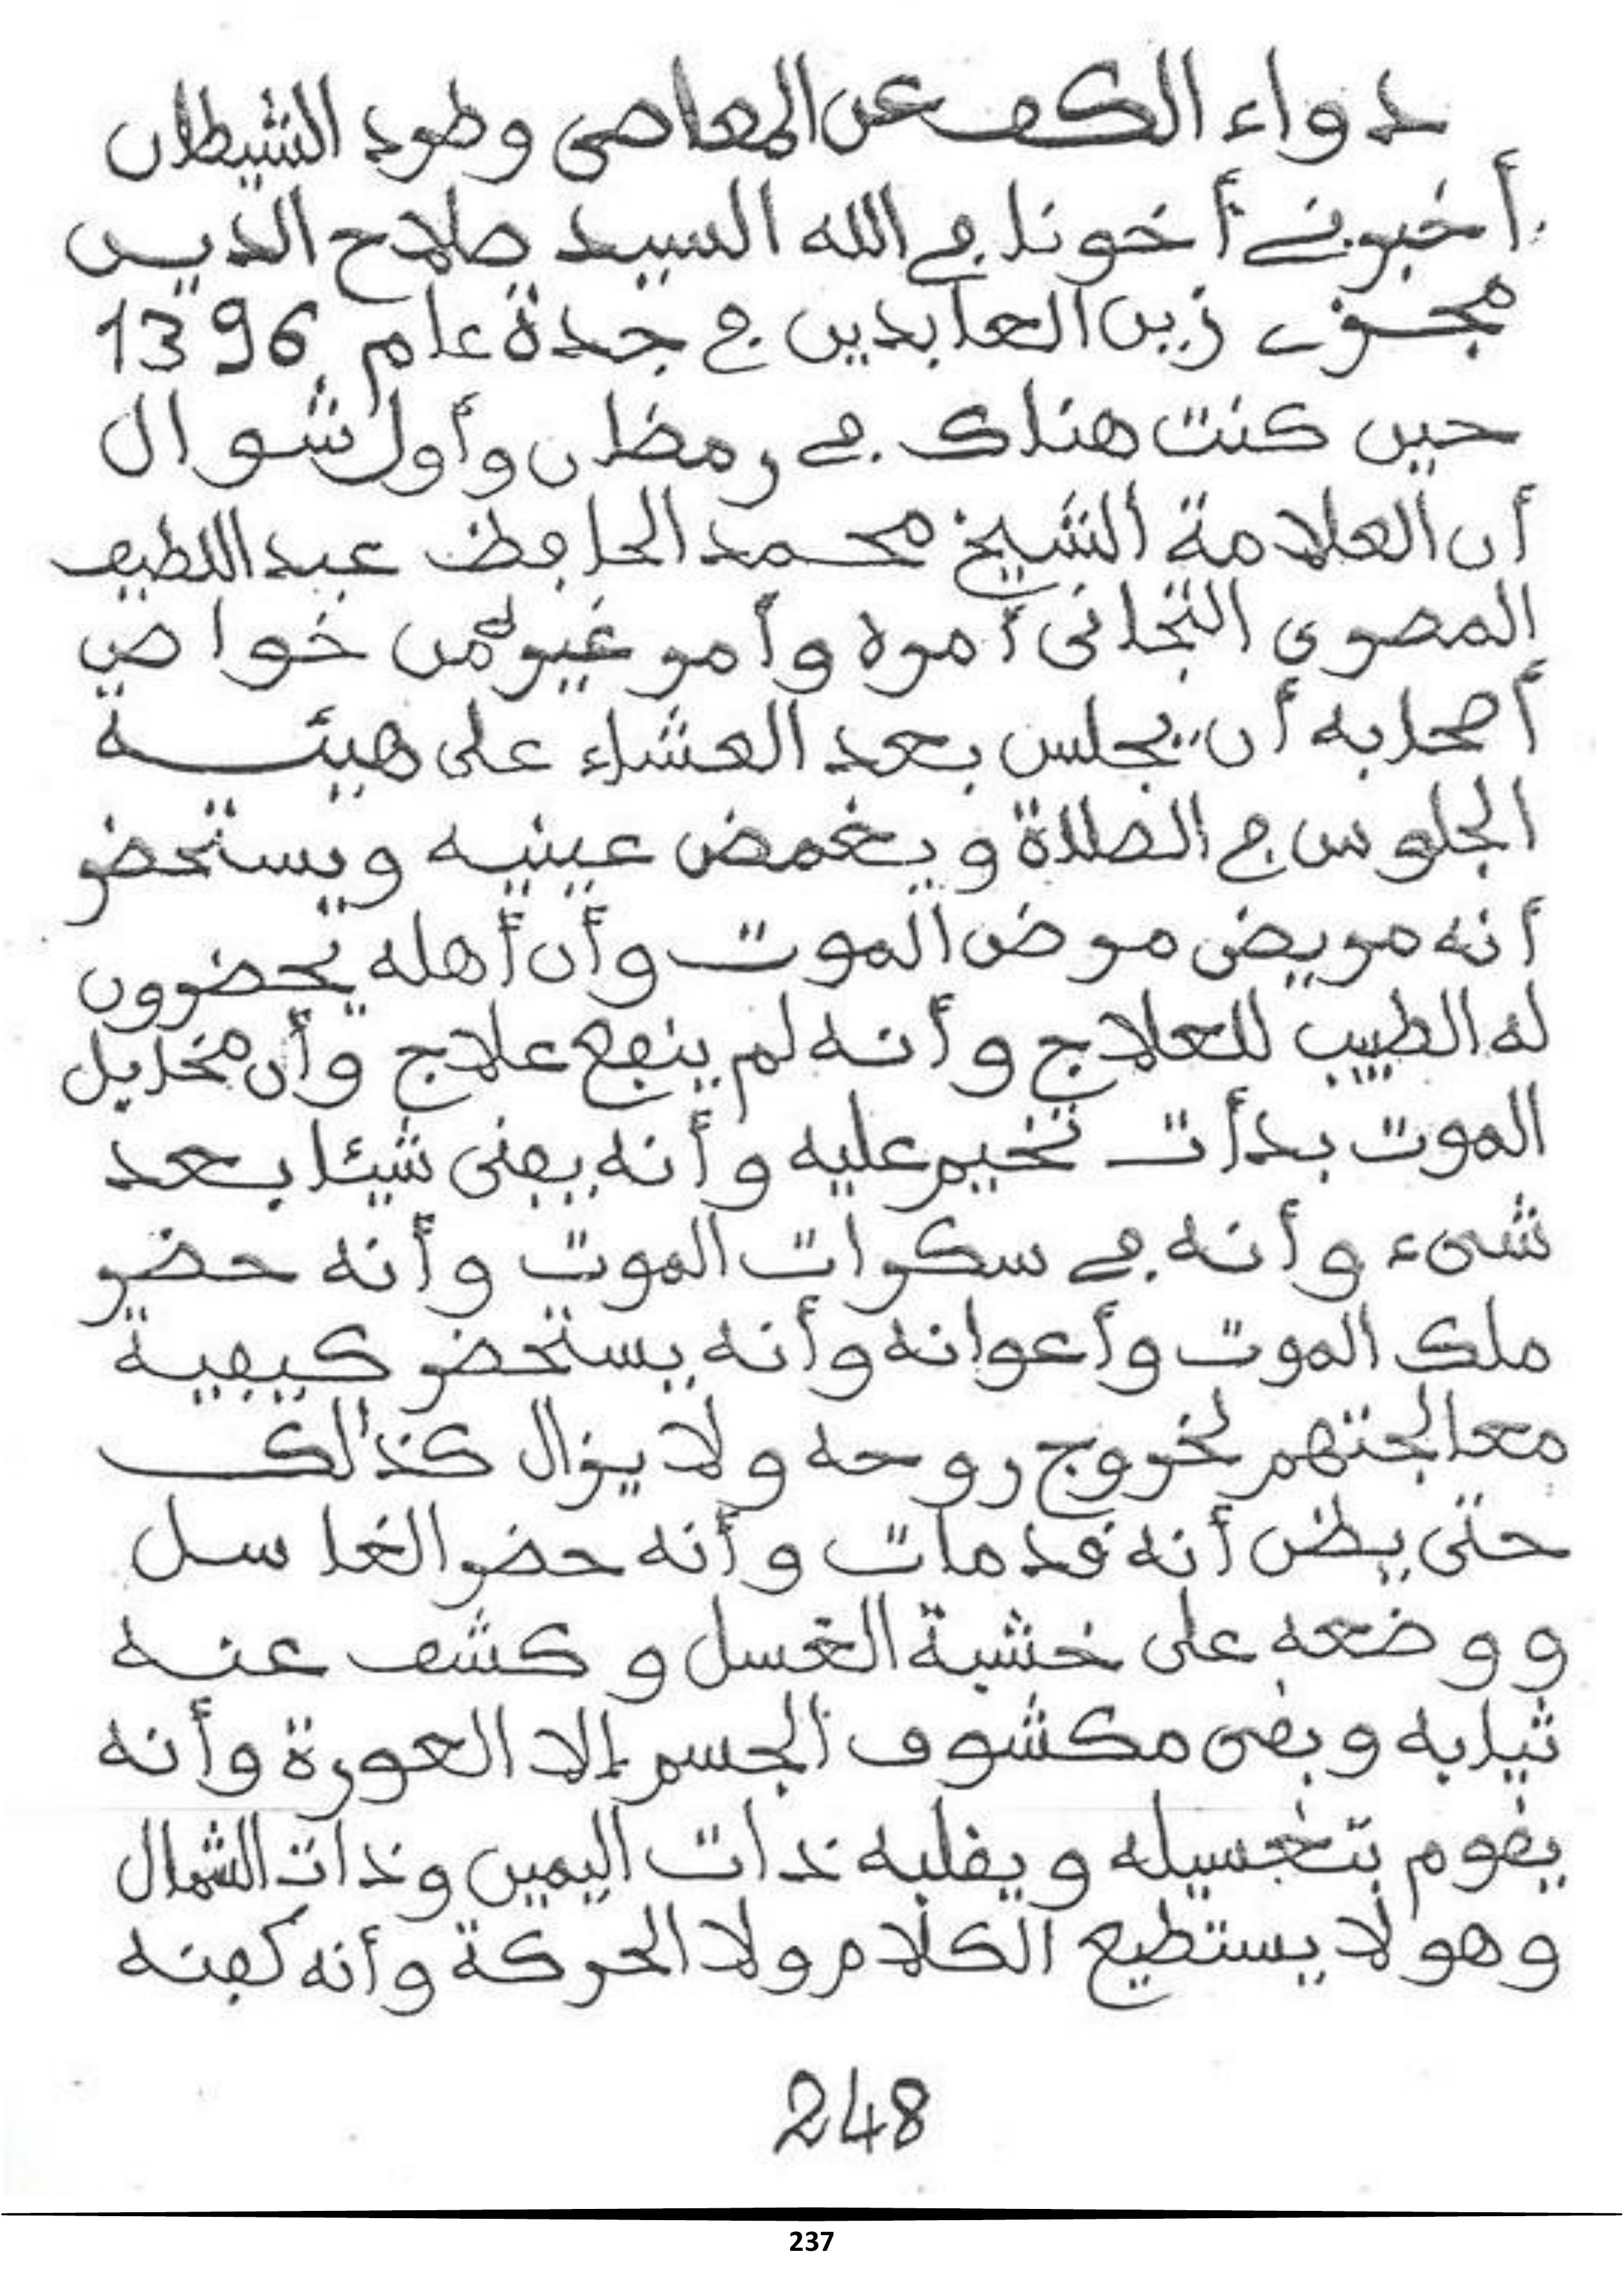 دواء الكف عن المعاصى وطرد الشيطان
أخبرني أخونا في الله السيد صلاح الديس
زين العابدين في جدة عام 1396
حين كنت هناك في رمضان وأول شوال
أن العلامة الشيخ محمد الحافظ عبد اللطيف
المصرى التجانى أمره وأمر غيره من خواص
أصحابه أن يجلس بعد العشاء على هيئة
الجلوس في الصلاة ويغمض عينيه ويستحضر
أنه مريض مرض الموت وأن أهله يحضرون
له الطبيب للعلاج وأنه لم ينفع علاج وأن مخايل
الموت بدأت تخيم عليه وأنه يفنى شيئا بعد
شىء وأنه في سكرات الموت وأنه حضر
ملك الموت وأعوانه وأنه يستحضر كيفية
معالجتهم لخروج روحه ولا يزال كذلك
حتى يظن أنه قد مات وأنه حضر الغاسل
ووضعه على خشبة الغسل وكشف عنه
ثيابه وبقى مكشوف الجسم إلا العورة وأنه
يقوم بتغسيله ويقلبه ذات اليمين وذات الشمال
وهو لا يستطيع الكلام ولا الحركة وأنه كفنه
248
237